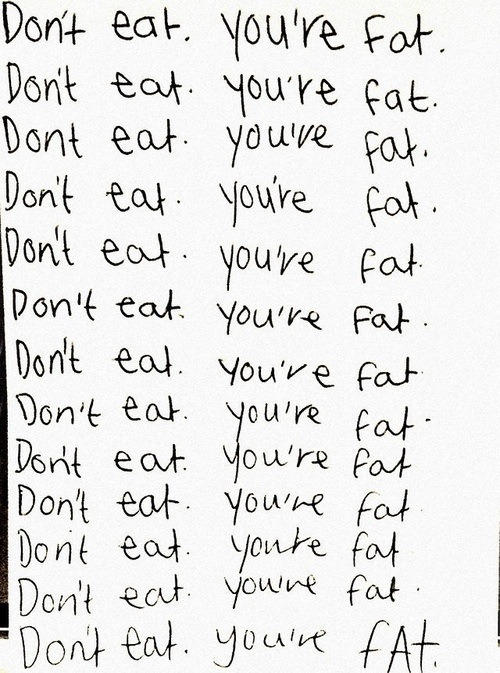 Don't eat. you're fat.
Don't eat. you're fat.
Dont eat. you're fat.
Don't eat. you're fat.
Don't eat. you're fat.
Don't eat. you're fat.
Don't eat. you're fat
Don't eat. you're fat.
Don't eat. you're fat
Don't eat. you're fat.
Don't eat. you're fat
Don't eat. you're fat.
Don't eat. you're fAt.